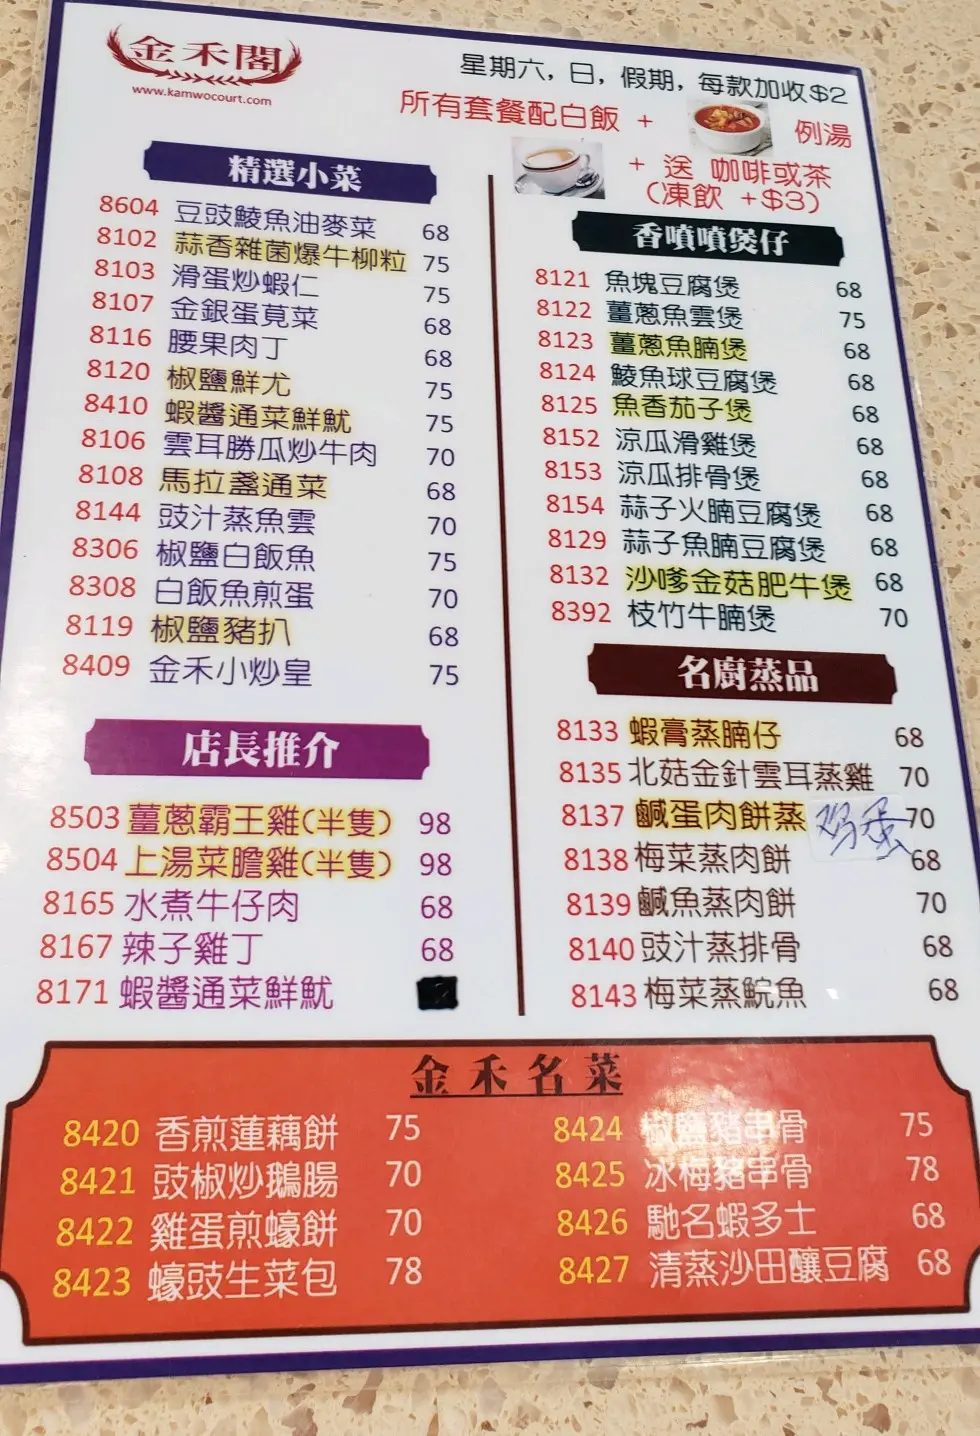 金禾閣
www.kamwocourt.com
星期六, 日, 假期, 每款加收$2
所有套餐配白飯 + 例湯
+ 送 咖啡或茶
(凍飲 +$3)
精選小菜
8604 豆豉鯪魚油麥菜 68
8102 蒜香雜菌爆牛柳粒 75
8103 滑蛋炒蝦仁 75
8107 金銀蛋莧菜 68
8116 腰果肉丁 68
8120 椒鹽鮮尤 75
8410 蝦醬通菜鮮魷 75
8106 雲耳勝瓜炒牛肉 70
8108 馬拉盞通菜 68
8144 豉汁蒸魚雲 70
8306 椒鹽白飯魚 75
8308 白飯魚煎蛋 70
8119 椒鹽豬扒 68
8409 金禾小炒皇 75
店長推介
8503 薑蔥霸王雞(半隻) 98
8504 上湯菜膽雞(半隻) 98
8165 水煮牛仔肉 68
8167 辣子雞丁 68
8171 蝦醬通菜鮮魷
香噴噴煲仔
8121 魚塊豆腐煲 68
8122 薑蔥魚雲煲 75
8123 薑蔥魚腩煲 68
8124 鯪魚球豆腐煲 68
8125 魚香茄子煲 68
8152 涼瓜滑雞煲 68
8153 涼瓜排骨煲 68
8154 蒜子火腩豆腐煲 68
8129 蒜子魚腩豆腐煲 68
8132 沙嗲金菇肥牛煲 68
8392 枝竹牛腩煲 70
名廚蒸品
8133 蝦膏蒸腩仔 68
8135 北菇金針雲耳蒸雞 70
8137 鹹蛋肉餅蒸 鸡蛋 70
8138 梅菜蒸肉餅 68
8139 鹹魚蒸肉餅 70
8140 豉汁蒸排骨 68
8143 梅菜蒸鯇魚 68
金禾名菜
8420 香煎蓮藕餅 75
8421 豉椒炒鵝腸 70
8422 雞蛋煎蠔餅 70
8423 蠔豉生菜包 78
8424 椒鹽豬串骨 75
8425 冰梅豬串骨 78
8426 馳名蝦多士 68
8427 清蒸沙田釀豆腐 68